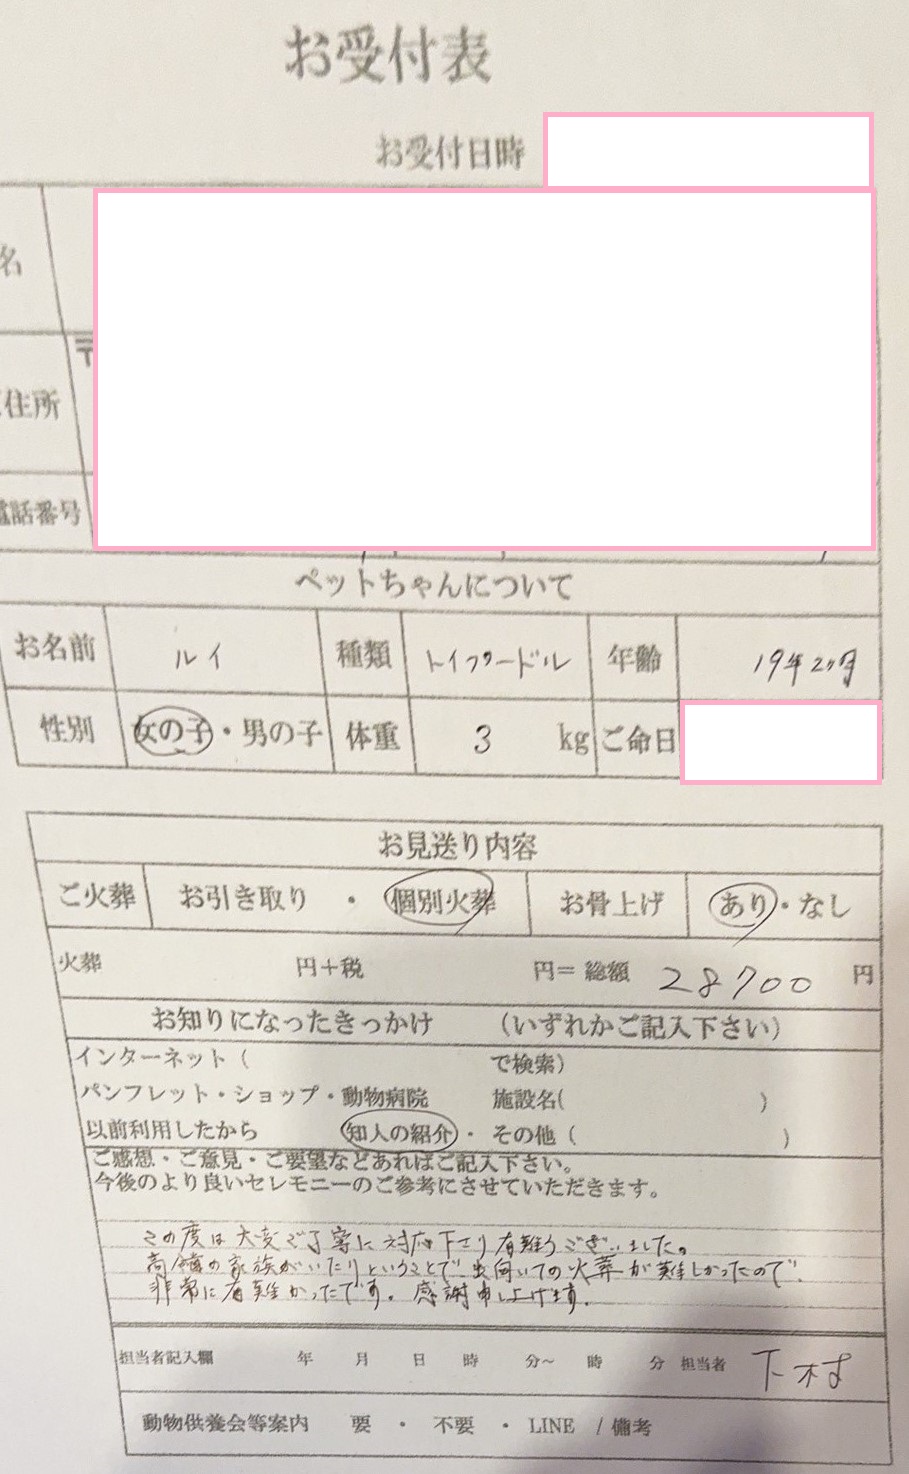 お受付表
お受付日時
名
〒
住所
電話番号
ペットちゃんについて
お名前 ルイ 種類 トイプードル 年齢 19年2ヶ月
性別 女の子・男の子 体重 3 kg ご命日
お見送り内容
ご火葬 お引き取り ・ 個別火葬 お骨上げ あり・なし
火葬 円+税 円= 総額 28700 円
お知りになったきっかけ (いずれかご記入下さい)
インターネット( で検索)
パンフレット・ショップ・動物病院 施設名( )
以前利用したから 知人の紹介・ その他( )
ご感想・ご意見・ご要望などあればご記入下さい。
今後のより良いセレモニーのご参考にさせていただきます。
この度は大変ご丁寧に対応下さり有難うございました。
高齢の家族がいたりということで出向いての火葬が難しかったので、
非常に有難かったです。感謝申し上げます。
担当者記入欄 年 月 日 時 分~ 時 分 担当者 下村
動物供養会等案内 要 ・ 不要 ・ LINE / 備考